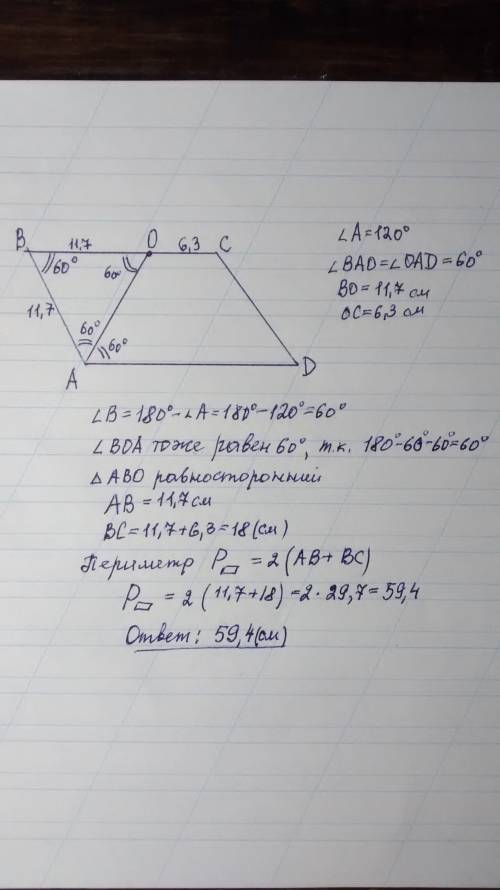 B 11,7 O 6,3 C
60° 60°
11,7
60°
60°
A D
∠A=120°
∠BAO=∠OAD=60°
BO=11,7 см
OC=6,3 см
∠B=180°-∠A=180°-120°=60°
∠BOA тоже равен 60°, т.к. 180°-60°-60°=60°
△ABO равносторонний
AB=11,7см
BC=11,7+6,3=18(см)
Периметр P▱=2(AB+BC)
P▱=2(11,7+18)=2·29,7=59,4
Ответ: 59,4(см)